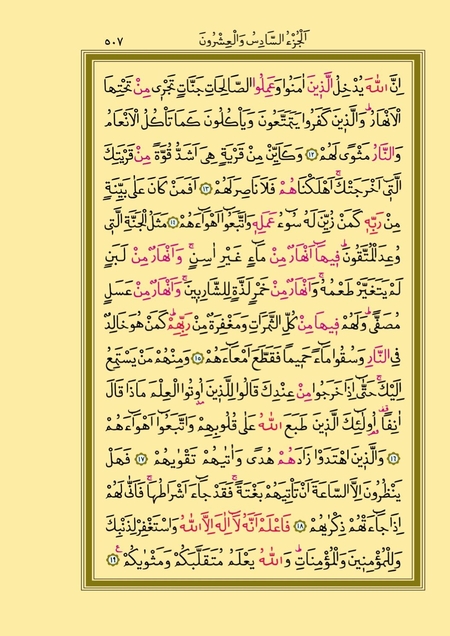 اَلْجُزْءُ السَّادِسُ وَالْعِشْرُونَ ٥٠٧
اِنَّ اللّٰهَ يُدْخِلُ الَّذٖينَ اٰمَنُوا وَعَمِلُوا الصَّالِحَاتِ جَنَّاتٍ تَجْرٖى مِنْ تَحْتِهَا
الْاَنْهَارُ وَالَّذٖينَ كَفَرُوا يَتَمَتَّعُونَ وَيَاْكُلُونَ كَمَا تَاْكُلُ الْاَنْعَامُ
وَالنَّارُ مَثْوًى لَهُمْ ﴿١٢﴾ وَكَاَيِّنْ مِنْ قَرْيَةٍ هِىَ اَشَدُّ قُوَّةً مِنْ قَرْيَتِكَ
الَّتٖى اَخْرَجَتْكَ اَهْلَكْنَاهُمْ فَلَا نَاصِرَ لَهُمْ ﴿١٣﴾ اَفَمَنْ كَانَ عَلٰى بَيِّنَةٍ
مِنْ رَبِّهٖ كَمَنْ زُيِّنَ لَهُ سُوءُ عَمَلِهٖ وَاتَّبَعُوا اَهْوَاءَهُمْ ﴿١٤﴾ مَثَلُ الْجَنَّةِ الَّتٖى
وُعِدَ الْمُتَّقُونَ فٖيهَا اَنْهَارٌ مِنْ مَاءٍ غَيْرِ اٰسِنٍ وَاَنْهَارٌ مِنْ لَبَنٍ
لَمْ يَتَغَيَّرْ طَعْمُهُ وَاَنْهَارٌ مِنْ خَمْرٍ لَذَّةٍ لِلشَّارِبٖينَ وَاَنْهَارٌ مِنْ عَسَلٍ
مُصَفًّى وَلَهُمْ فٖيهَا مِنْ كُلِّ الثَّمَرَاتِ وَمَغْفِرَةٌ مِنْ رَبِّهِمْ كَمَنْ هُوَ خَالِدٌ
فِى النَّارِ وَسُقُوا مَاءً حَمٖيمًا فَقَطَّعَ اَمْعَاءَهُمْ ﴿١٥﴾ وَمِنْهُمْ مَنْ يَسْتَمِعُ
اِلَيْكَ حَتّٰى اِذَا خَرَجُوا مِنْ عِنْدِكَ قَالُوا لِلَّذٖينَ اُوتُوا الْعِلْمَ مَاذَا قَالَ
اٰنِفًا اُولٰئِكَ الَّذٖينَ طَبَعَ اللّٰهُ عَلٰى قُلُوبِهِمْ وَاتَّبَعُوا اَهْوَاءَهُمْ
﴿١٦﴾ وَالَّذٖينَ اهْتَدَوْا زَادَهُمْ هُدًى وَاٰتٰيهُمْ تَقْوٰيهُمْ ﴿١٧﴾ فَهَلْ
يَنْظُرُونَ اِلَّا السَّاعَةَ اَنْ تَاْتِيَهُمْ بَغْتَةً فَقَدْ جَاءَ اَشْرَاطُهَا فَاَنّٰى لَهُمْ
اِذَا جَاءَتْهُمْ ذِكْرٰيهُمْ ﴿١٨﴾ فَاعْلَمْ اَنَّهُ لَا اِلٰهَ اِلَّا اللّٰهُ وَاسْتَغْفِرْ لِذَنْبِكَ
وَلِلْمُؤْمِنٖينَ وَالْمُؤْمِنَاتِ وَاللّٰهُ يَعْلَمُ مُتَقَلَّبَكُمْ وَمَثْوٰيكُمْ ﴿١٩﴾